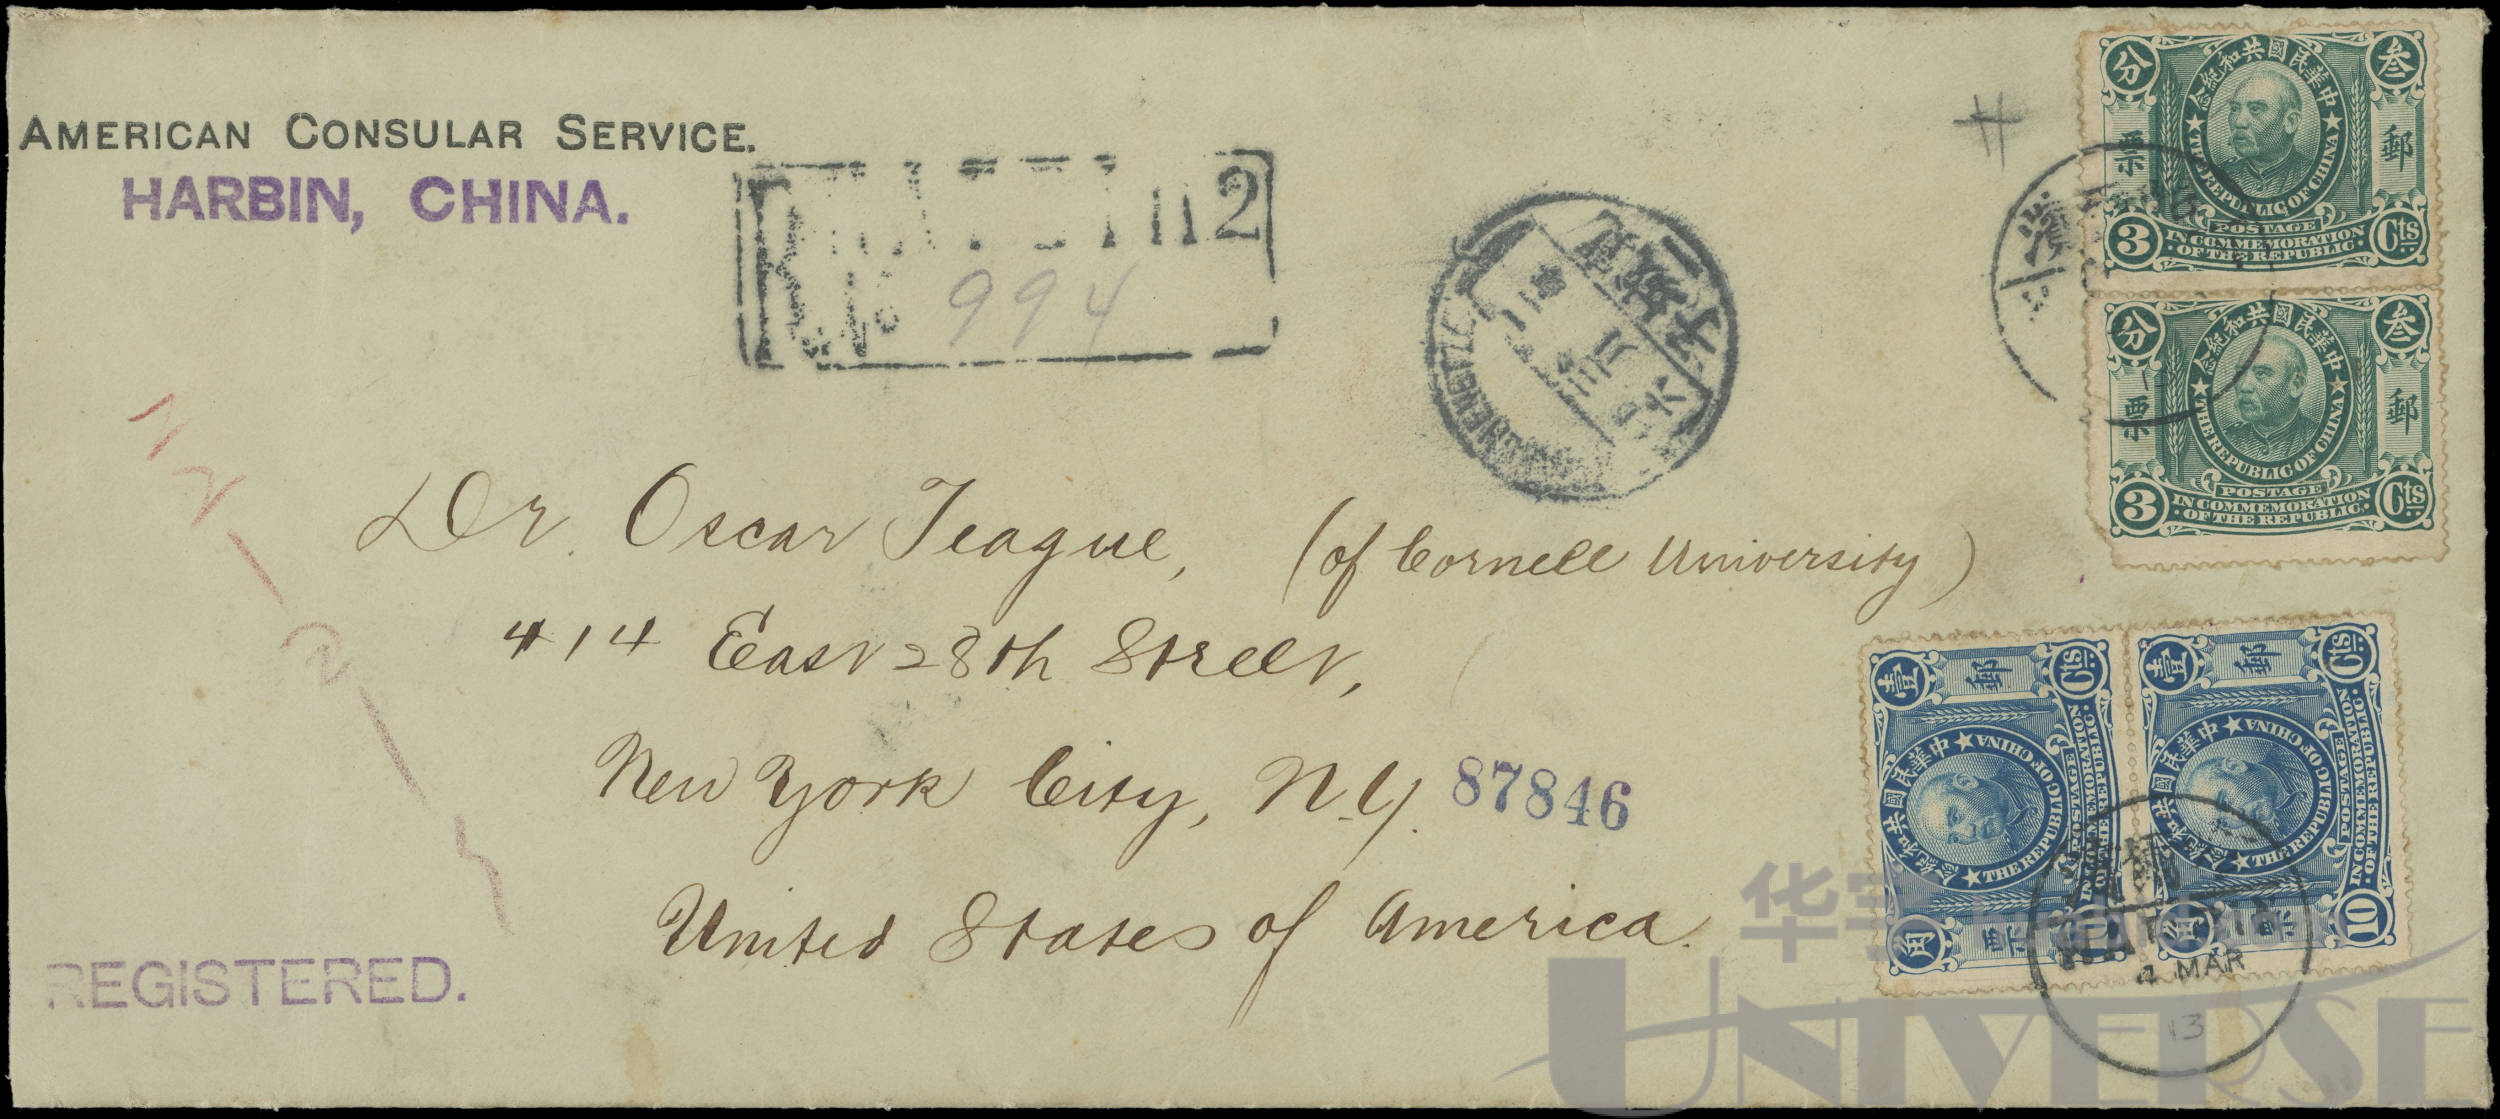 AMERICAN CONSULAR SERVICE.
HARBIN, CHINA.
R
No. 994
Dr. Oscar Teague, (of Cornell University)
414 East 28th Street,
New York City, N.Y. 87846
United States of America.
REGISTERED.
分 中華民國共和紀念 叁
票 郵
THE REPUBLIC OF CHINA
POSTAGE
3 IN COMMEMORATION Cts
OF THE REPUBLIC.
分 中華民國共和紀念 叁
票 郵
THE REPUBLIC OF CHINA
POSTAGE
3 IN COMMEMORATION Cts
OF THE REPUBLIC.
角 中華民國共和紀念 壹
票 郵
THE REPUBLIC OF CHINA
POSTAGE
IN COMMEMORATION Cts
OF THE REPUBLIC.
角 中華民國共和紀念 壹
票 郵
THE REPUBLIC OF CHINA
POSTAGE
10 IN COMMEMORATION Cts
OF THE REPUBLIC.
4 MAR
13
华宇
UNIVERSE